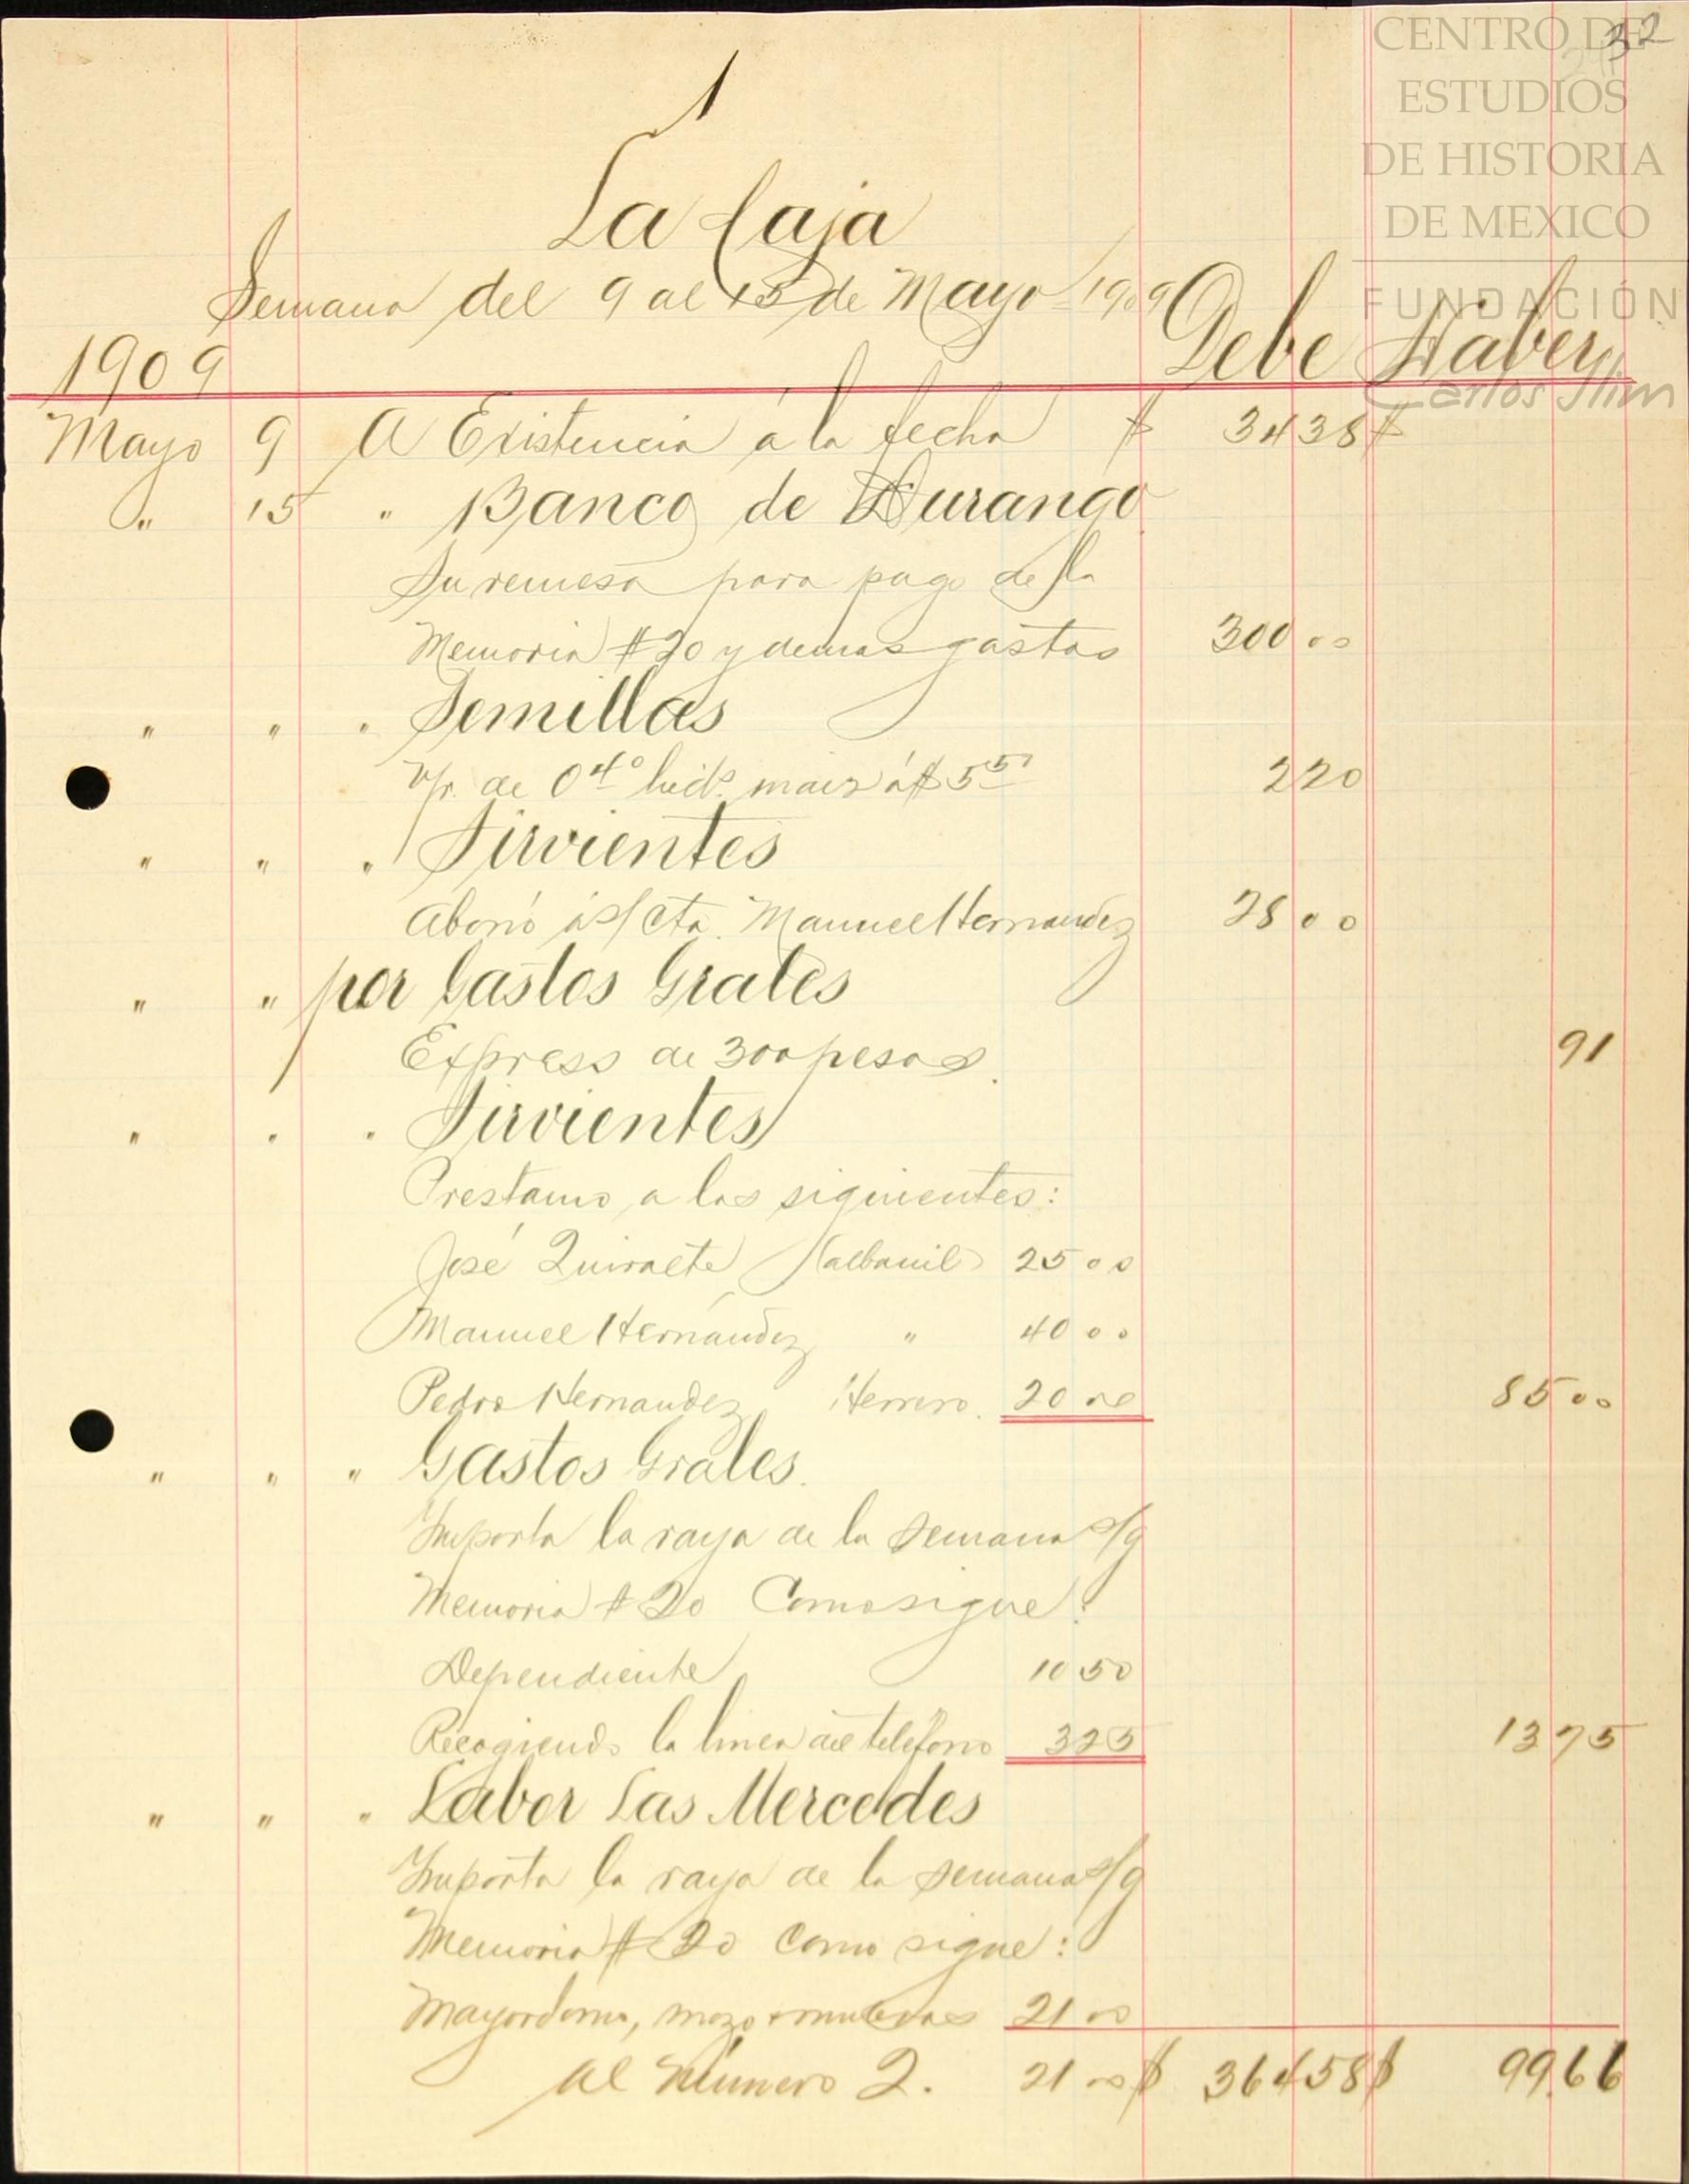 32
CENTRO DE
ESTUDIOS
DE HISTORIA
DE MEXICO
FUNDACIÓN
Carlos Slim
1
La Caja
Semana del 9 al 15 de Mayo 1909 Debe Haber
1909
Mayo 9 A Existencia á la fecha $ 34 38 $
" 15 " Banco de Durango
Su remesa para pago de la
Memoria # 20 y demas gastos 300 00
" " " Semillas
v/r. de 0 40 hects maiz á $ 5 50 2 20
" " " Sirvientes
Abonó á s/ cta. Manuel Hernandez 28 00
" " por Gastos Grales
Express de 300 pesos. 91
" " " Sirvientes
Prestamo a los siguientes:
José Quiralte (albanil) 25 00
Manuel Hernández " 40 00
Pedro Hernandez Herrero. 20 00 85 00
" " " Gastos Grales.
Importa la raya de la semana s/g
Memoria # 20 Como sigue:
Dependiente 10 50
Recogiendo la linea del teléfono 3 25 13 75
" " " Labor Las Mercedes
Importa la raya de la semana s/g
Memoria # 20 como sigue:
Mayordomo, mozo 21 00
Al Número 2. 21 00 $ 364 58 $ 99.66